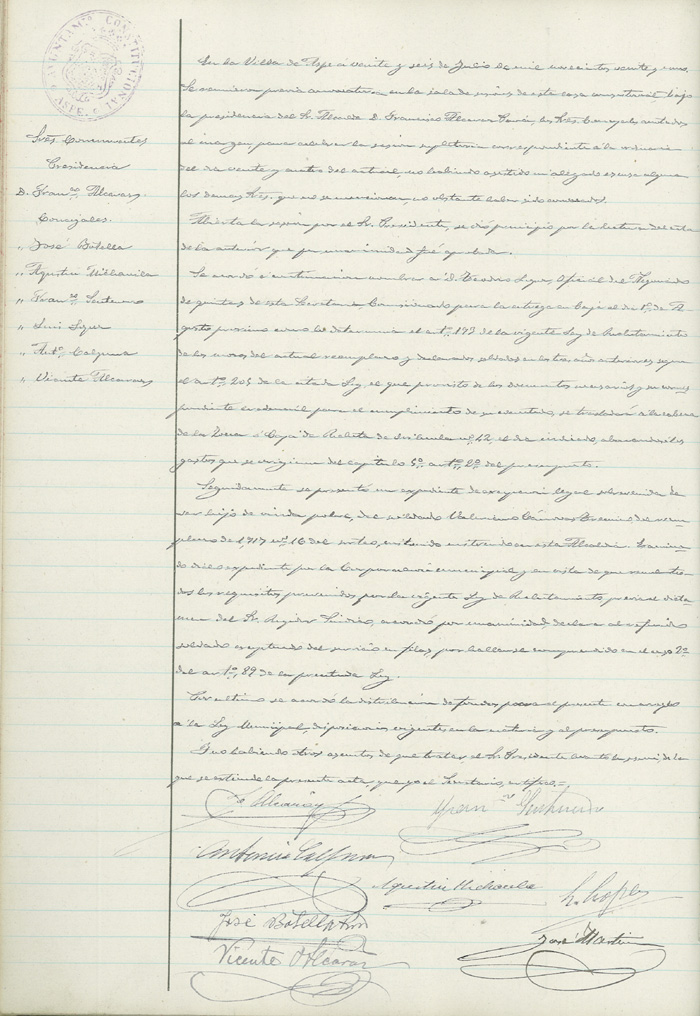 AYUNTAMTO CONSTITUCIONAL
ASPE
Sres. Concurrentes
Presidencia
D. Franco Alcaraz
Concejales
" José Botella
" Agustín
" Franco
" Luis
" Anto Calpena
" Vicente Alcaraz
En la Villa de Aspe a veinte y seis de Julio de mil novecientos veinte y uno.
Se reunieron previa convocatoria en la sala de sesiones de esta casa consistorial, bajo
la presidencia del Sr. Alcalde D. Francisco Alcaraz, los Sres. Concejales anotados
al margen, para celebrar la sesión supletoria correspondiente a la ordinaria
del día veinte y cuatro del actual, no habiendo asistido ni alegado escusa alguna
los demás Sres. que no se mencionan, no obstante haber sido convocados.
Abierta la sesión por el Sr. Presidente, se dió principio por la lectura del acta
de la anterior que por unanimidad fué aprobada.
Se acordó a continuación nombrar a D. Oficial del Negociado
de quintas de esta Secretaría, Comisionado para la entrega en Caja el día 1º de A-
gosto próximo como lo determina el artº 193 de la vigente Ley de Reclutamiento
de los mozos del actual reemplazo y declarados soldados en los años anteriores según
el artº 205 de la citada Ley, el que provisto de los documentos necesarios y su corres-
pondiente credencial para el cumplimiento de su cometido, se trasladará a la cabeza
de la Zona o Caja de Recluta de Orihuela nº 42, el día indicado, abonandosele los
gastos que se originen del capítulo 5º artº 2º del presupuesto.
Seguidamente se presentó un expediente de excepción legal sobrevenida de
ser hijo de viuda pobre, del soldado Valentino del reem-
plazo de 1917 nº 16 del sorteo, instruido en esta Alcaldía. Examina-
do dicho expediente por la Corporación municipal y en vista de que reune to-
dos los requisitos prevenidos por la vigente Ley de Reclutamiento, previo el dicta-
men del Sr. Regidor Síndico, acordó por unanimidad, declarar al referido
soldado exceptuado del servicio en filas, por hallarse comprendido en el caso 2º
del artº 89 de la precitada Ley.
Por último se acordó la distribución de fondos para el presente con arreglo
a la Ley Municipal, disposiciones vigentes en la materia y al presupuesto.
Y no habiendo otros asuntos de que tratar, el Sr. Presidente levantó la sesión de la
que se extiende la presente acta, que yo el Secretario, certifico.=
F. Alcaraz
Franco
Antonio Calpena
Agustín
José Botella
José Martin
Vicente Alcaraz